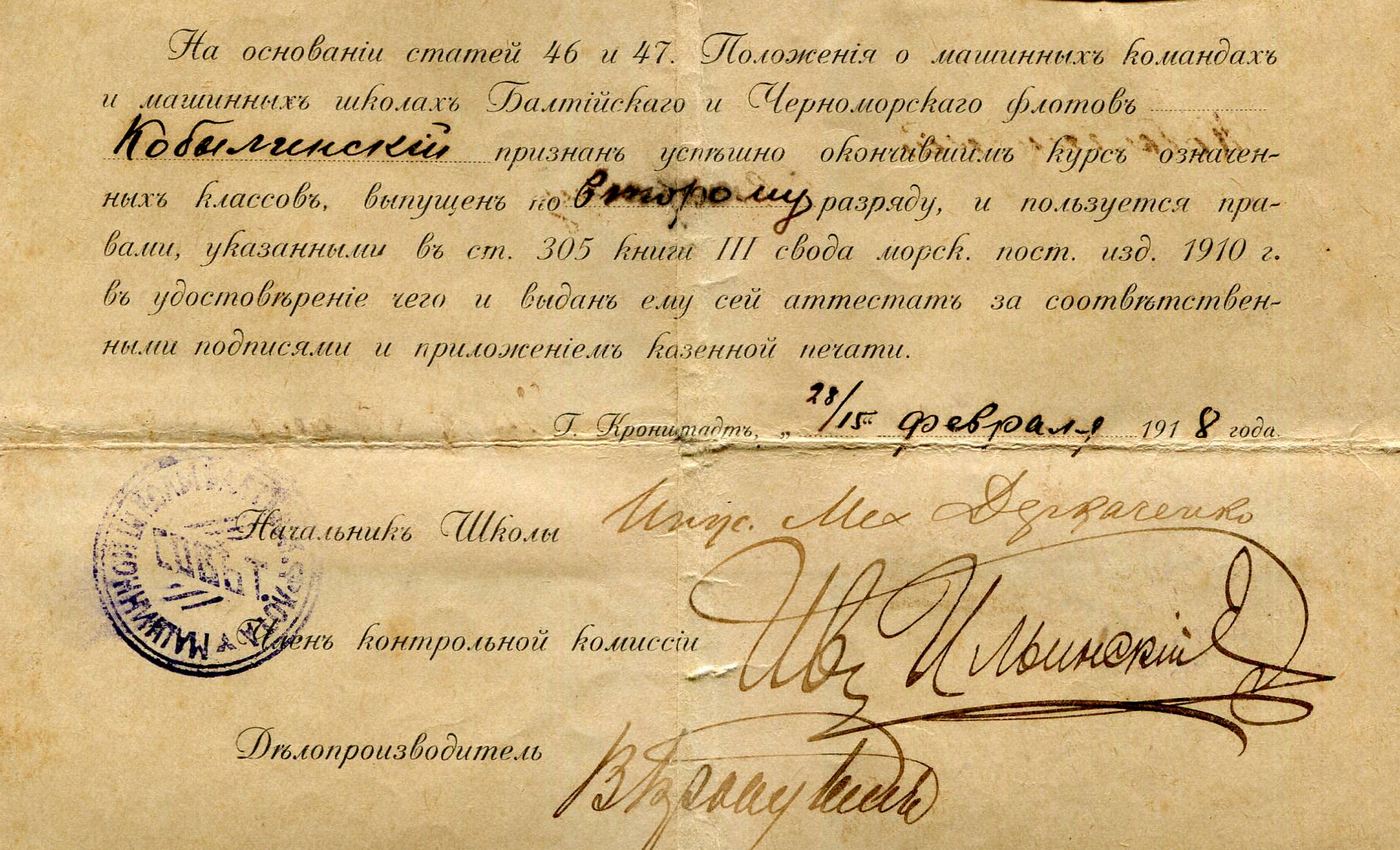 На основаніи статей 46 и 47. Положенія о машинныхъ командахъ
и машинныхъ школахъ Балтійскаго и Черноморскаго флотовъ
Кобылинскій признанъ успѣшно окончившимъ курсъ означен-
ныхъ классовъ, выпущенъ по второму разряду, и пользуется пра-
вами, указанными въ ст. 305 книги III свода морск. пост. изд. 1910 г.
въ удостовѣреніе чего и выданъ ему сей аттестатъ за соотвѣтствен-
ными подписями и приложеніемъ казенной печати.
Г. Кронштадтъ, „ 28/15 " февраля 1918 года.
Начальникъ Школы Инж. Мех Деркаченко
СОВѢТ.
МАШИННОЙ ШКОЛЫ
Членъ контрольной комиссіи Ив Ильинскій
Дѣлопроизводитель